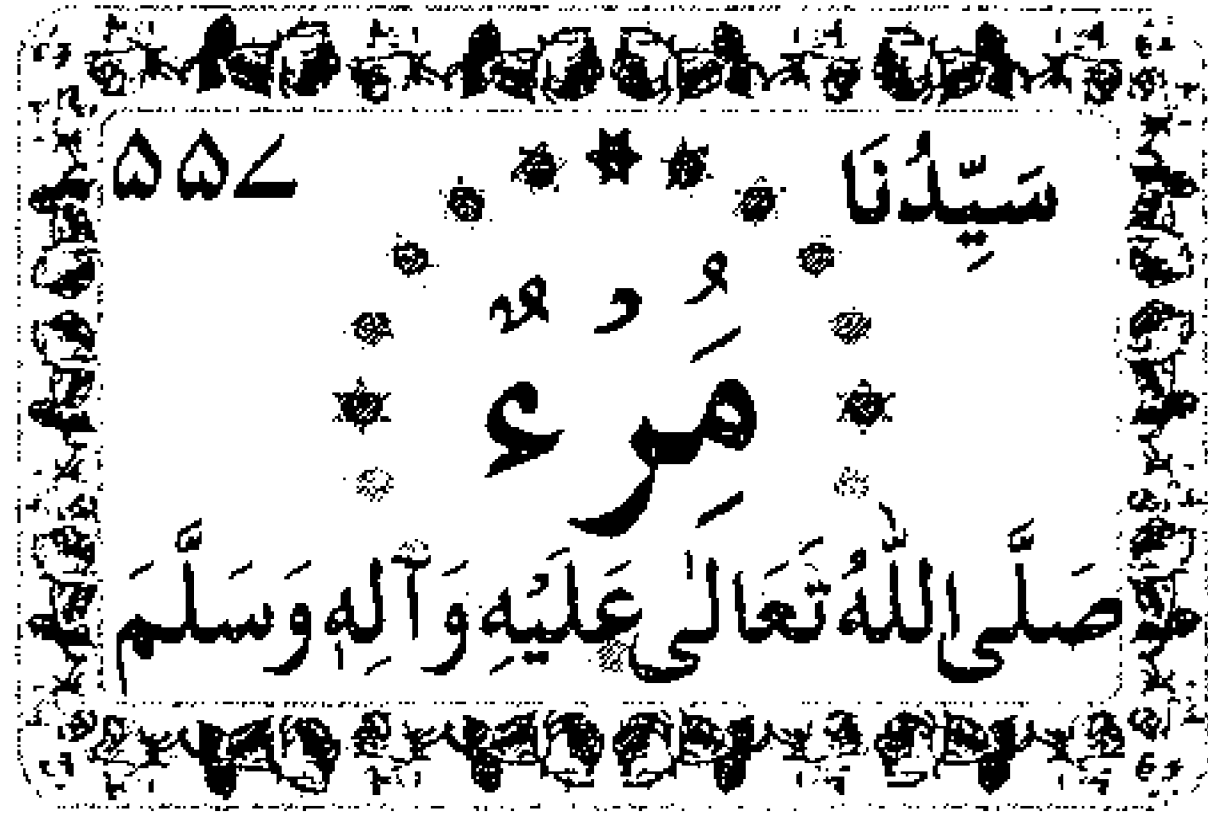 سَيِّدُنَا ۵۵۷
مَُِرْءٌ
صَلَّى اللّٰهُ تَعَالٰى عَلَيْهِ وَآلِهٖ وَسَلَّمَ